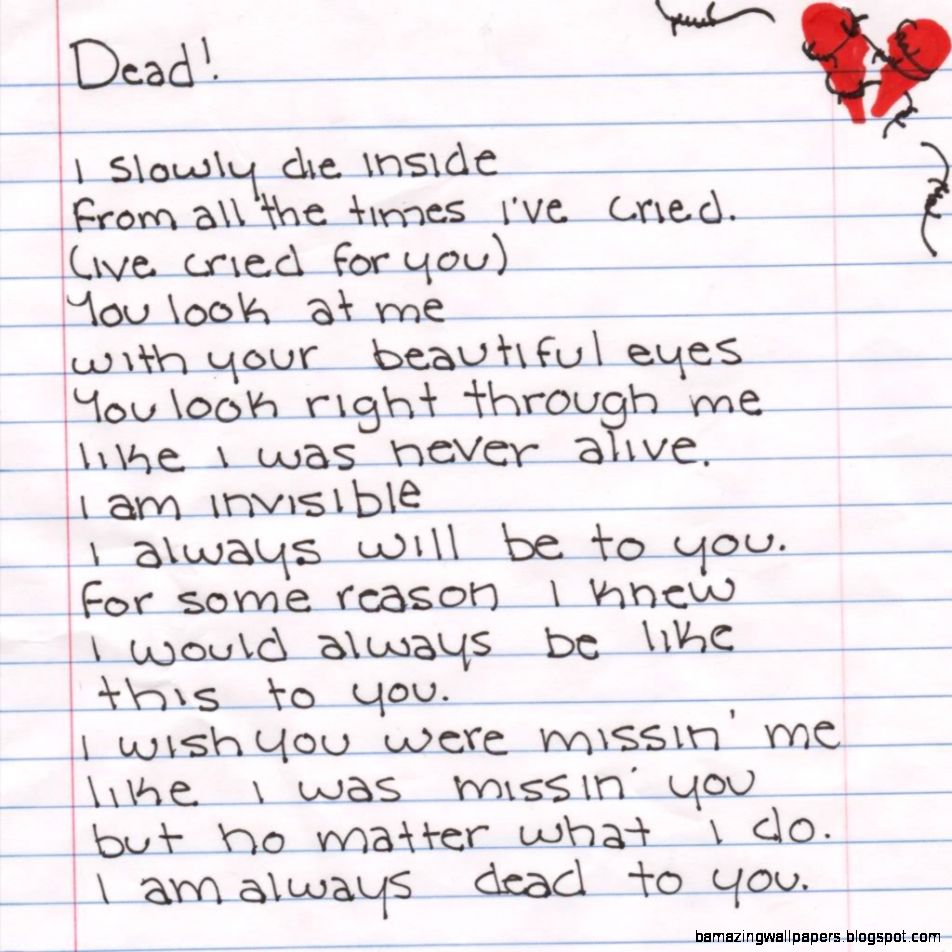 Dead!
I slowly die inside
From all the times i've cried.
(ive cried for you)
You look at me
with your beautiful eyes
You look right through me
like i was never alive.
I am invisible
I always will be to you.
For some reason I knew
I would always be like
this to you.
I wish you were missin' me
like I was missin' you
but no matter what I do.
I am always dead to you.
bamazingwallpapers.blogspot.com